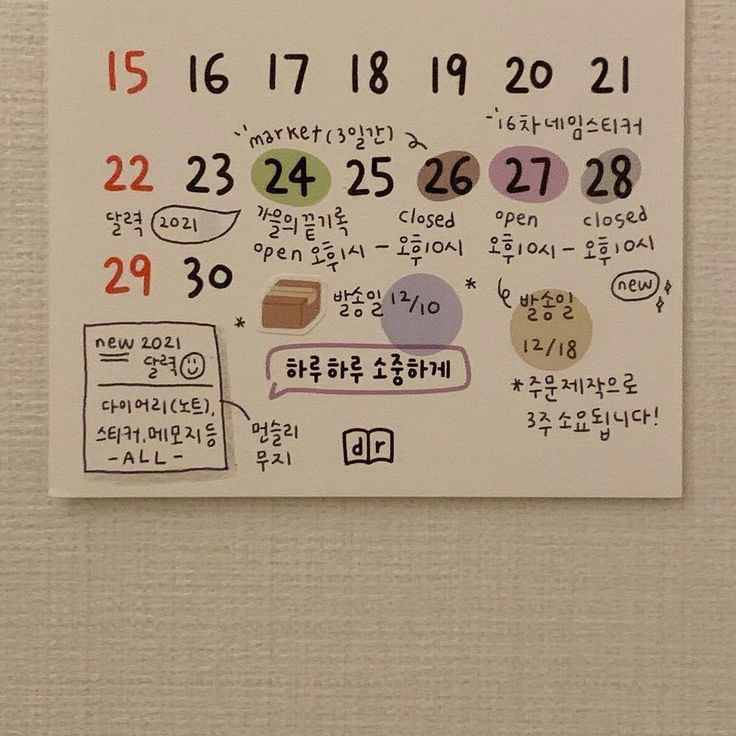 15 16 17 18 19 20 21
market (3일간)
16차 네임스티커
22 23 24 25 26 27 28
달력 2021
가을의 끝기록 closed open closed
open 오후1시 - 오후10시 오후10시 - 오후10시
29 30
발송일 12/10 *
발송일
12/18
new
*
new 2021
달력
다이어리(노트),
스티커, 메모지 등
- ALL -
먼슬리
무지
하루하루 소중하게
*주문제작으로
3주 소요됩니다!
dr